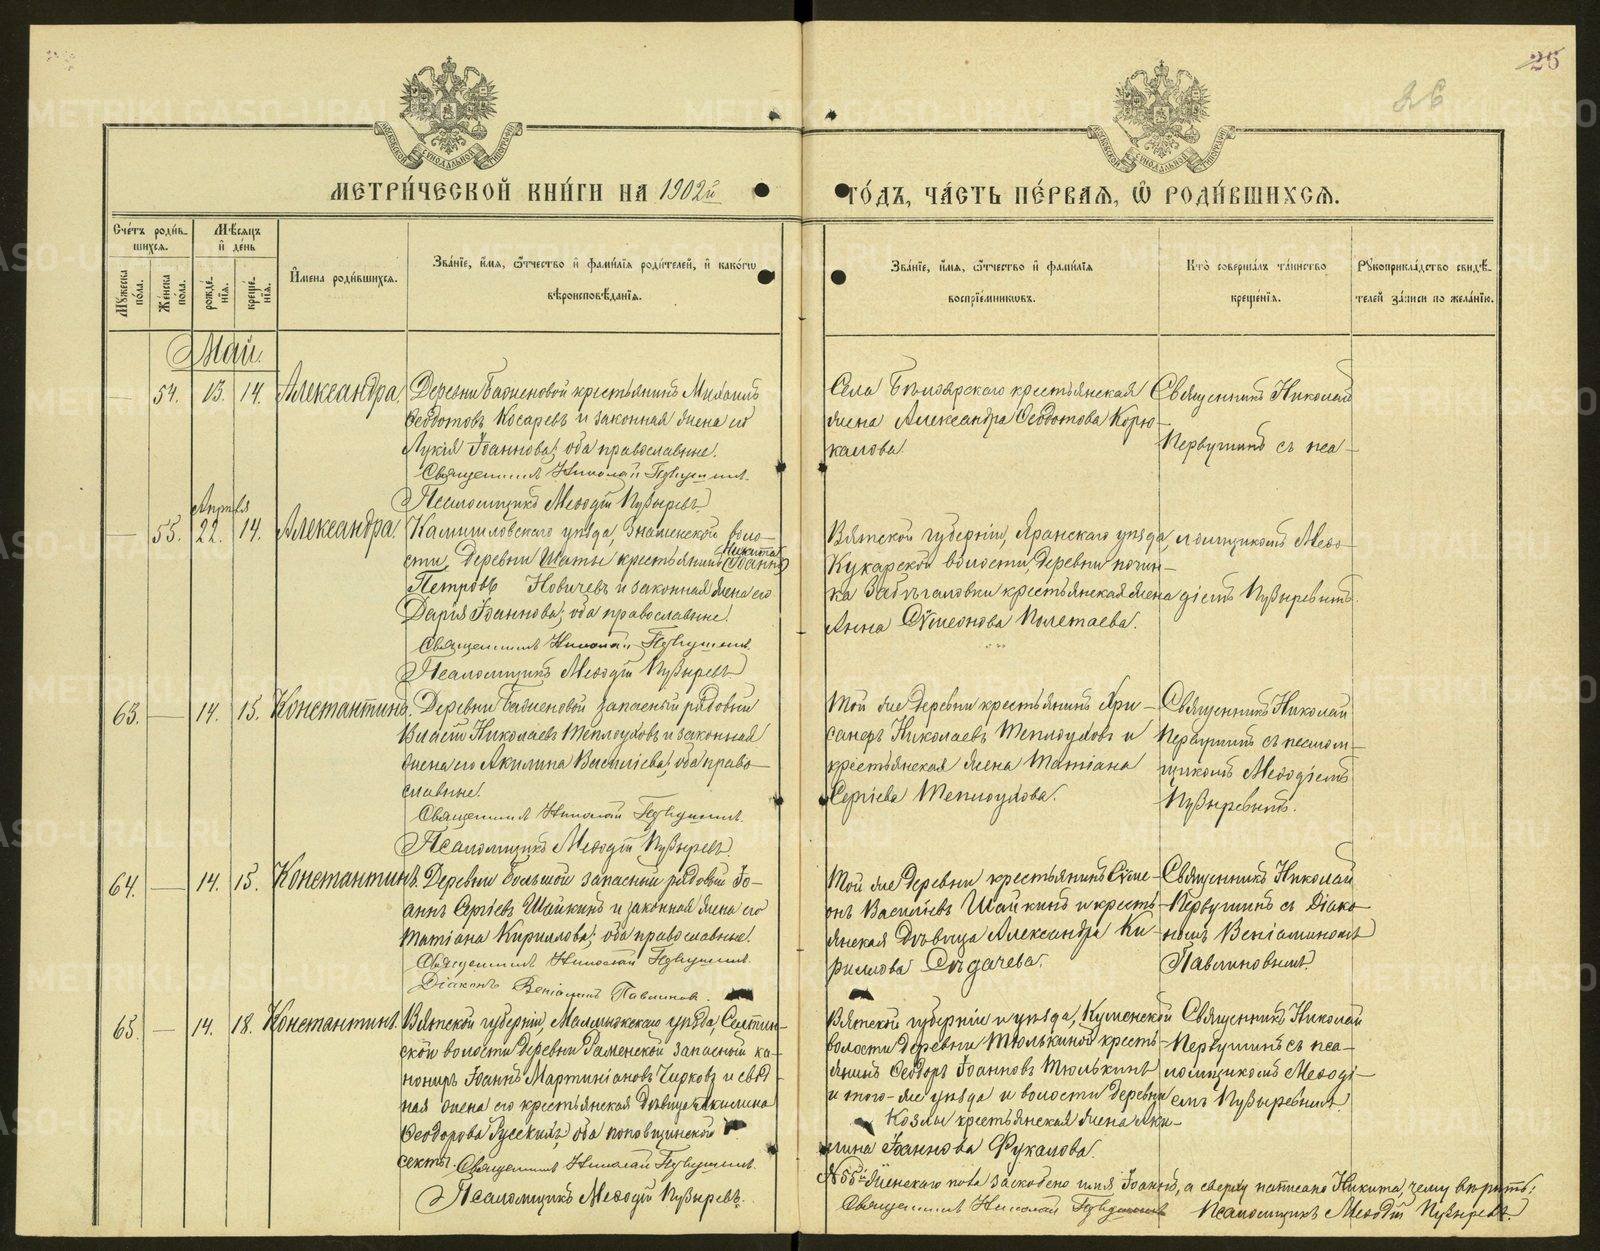 26
26
МЕТРИ́ЧЕСКОЙ КНИ́ГИ НА 1902й
ГО́ДЪ, ЧА́СТЬ ПЕ́РВАЯ, Ѡ҆ РОДИ́ВШИХСЯ.
Сче́тъ роди́в-
шихся.
Мѣ́сяцъ
и де́нь
Мꙋ́жеска по́ла.
Же́нска по́ла.
рожде́-
нїя.
креще́-
нїя.
И҆мена роди́вшихся.
Зва́нїе, и҆́мя, ѻ҆́тчество и҆ фами́лїя роди́телей, и҆ како́гѡ
вѣроисповѣ́данїя.
Зва́нїе, и҆́мя, ѻ҆́тчество и҆ фами́лїя
воспрїе́мниковъ.
Кто̀ соверша́лъ та́инство
креще́нїя.
Рꙋкоприкла́дство свидѣ́-
телей за́писи по жела́нїю.
Май.
— 54. 13. 14. Александра.
Деревни Баженовой крестьянинъ Михаилъ
Ѳеодотовъ Косаревъ и законная жена его
Лукія Іоаннова; оба православные.
Священникъ Николай Первушинъ.
Псаломщикъ Меѳодій Пузыревъ.
Села Бѣлоярскаго крестьянская
жена Александра Ѳеодотова Корю-
калова
Священникъ Николай
Первушинъ съ пса-
Апрѣля
— 55. 22. 14. Александра.
Камышловскаго уѣзда, Знаменской воло-
сти, деревни Шаты крестьянинъ (Іоаннъ)
Никита
Петровъ Новичевъ и законная жена его
Дарія Іоаннова; оба православные.
Священникъ Николай Первушинъ.
Псаломщикъ Меѳодій Пузыревъ
Вятской губерніи, Яранскаго уѣзда,
Кукарской волости, деревни почин-
ка Забѣгаловки крестьянская жена
Анна Сѵмеонова Полетаева.
ломщикомъ Меѳо-
діемъ Пузыревымъ.
63. — 14. 15. Константинъ.
Деревни Баженовой запасный рядовый
Власій Николаевъ Теплоуховъ и законная
жена его Акилина Василіева; оба право-
славные.
Священникъ Николай Первушинъ.
Псаломщикъ Меѳодій Пузыревъ.
Той же деревни крестьянинъ Хри-
санѳъ Николаевъ Теплоуховъ и
крестьянская жена Татіана
Сергіева Теплоухова.
Священникъ Николай
Первушинъ съ псалом-
щикомъ Меѳодіемъ
Пузыревымъ.
64. — 14. 15. Константинъ.
Деревни Большой запасный рядовый Іо-
аннъ Сергіевъ Шайкинъ и законная жена его
Татіана Кириллова; оба православные.
Священникъ Николай Первушинъ.
Діаконъ Веніаминъ Павлиновъ.
Той же деревни крестьянинъ Сѵме-
онъ Василіевъ Шайкинъ и кресть-
янская дѣвица Александра Ки-
риллова Сѣдачева.
Священникъ Николай
Первушинъ съ Діако-
номъ Веніаминомъ
Павлиновымъ.
65. — 14. 18. Константинъ.
Вятской губерніи, Малмыжскаго уѣзда, Селтин-
ской волости деревни Раменской запасный ка-
нониръ Іоаннъ Мартиніановъ Чирковъ и свод-
ная жена его крестьянская дѣвица Акилина
Ѳеодорова Русскихъ; оба поповщинской
секты. Священникъ Николай Первушинъ.
Псаломщикъ Меѳодій Пузыревъ.
Вятской губерніи и уѣзда, Куменской
волости деревни Тюлькиной кресть-
янинъ Ѳеодоръ Іоанновъ Тюлькинъ
и того-же уѣзда и волости деревни
Козлы крестьянская жена Аки-
лина Іоаннова Фукалова.
Священникъ Николай
Первушинъ съ пса-
ломщикомъ Меѳоді-
емъ Пузыревымъ.
№ 55й женскаго пола заскоблено имя Іоаннъ, а сверху написано Никита, чему вѣрить:
Священникъ Николай Первушинъ Псаломщикъ Меѳодій Пузыревъ.
METRIKI.GASO-URAL.RU